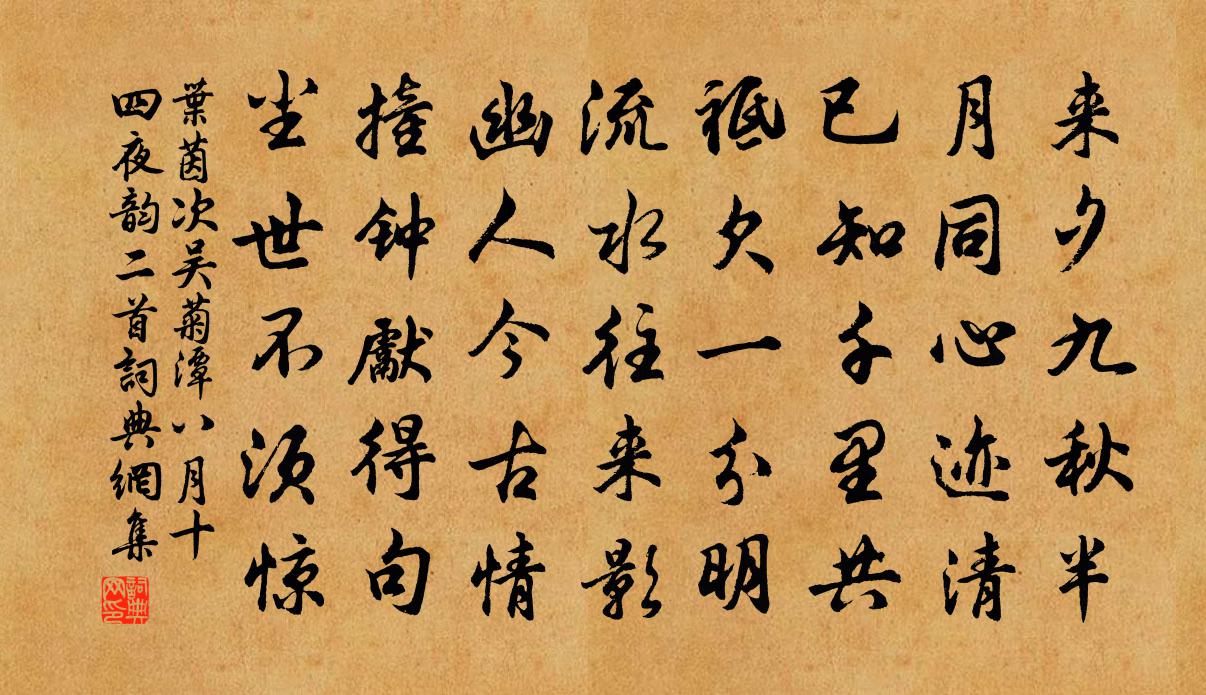 来夕九秋半
月同心迹清
已知千里共
祗欠一分明
流水往来影
幽人今古情
撞钟献得句
尘世不须惊
葉茵次吴菊潭八月十
四夜韵二首詞典網集
詞典网印